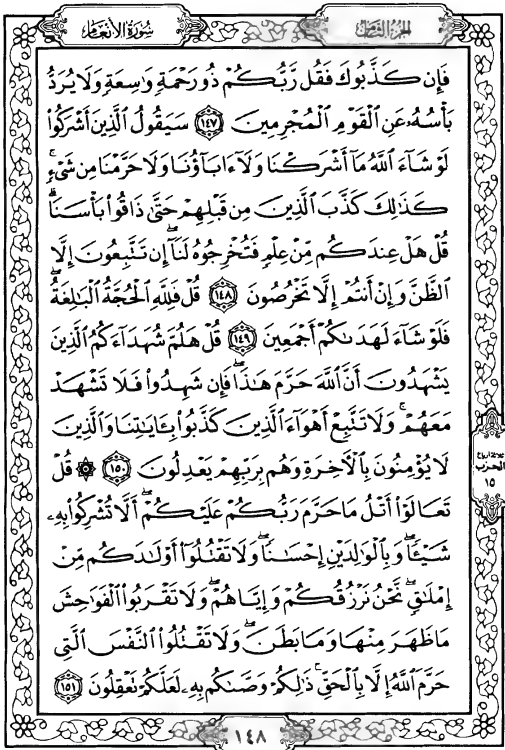 سُورَةُ الأَنْعَامِ
الجُزْءُ الثَّامِنُ
فَإِن كَذَّبُوكَ فَقُل رَّبُّكُمْ ذُو رَحْمَةٍ وَٰسِعَةٍ وَلَا يُرَدُّ
بَأْسُهُۥ عَنِ ٱلْقَوْمِ ٱلْمُجْرِمِينَ ١٤٧ سَيَقُولُ ٱلَّذِينَ أَشْرَكُوا۟
لَوْ شَآءَ ٱللَّهُ مَآ أَشْرَكْنَا وَلَآ ءَابَآؤُنَا وَلَا حَرَّمْنَا مِن شَىْءٍ ۚ
كَذَٰلِكَ كَذَّبَ ٱلَّذِينَ مِن قَبْلِهِمْ حَتَّىٰ ذَاقُوا۟ بَأْسَنَا ۗ
قُلْ هَلْ عِندَكُم مِّنْ عِلْمٍ فَتُخْرِجُوهُ لَنَآ ۖ إِن تَتَّبِعُونَ إِلَّا
ٱلظَّنَّ وَإِنْ أَنتُمْ إِلَّا تَخْرُصُونَ ١٤٨ قُلْ فَلِلَّهِ ٱلْحُجَّةُ ٱلْبَٰلِغَةُ ۖ
فَلَوْ شَآءَ لَهَدَىٰكُمْ أَجْمَعِينَ ١٤٩ قُلْ هَلُمَّ شُهَدَآءَكُمُ ٱلَّذِينَ
يَشْهَدُونَ أَنَّ ٱللَّهَ حَرَّمَ هَٰذَا ۖ فَإِن شَهِدُوا۟ فَلَا تَشْهَدْ
مَعَهُمْ ۚ وَلَا تَتَّبِعْ أَهْوَآءَ ٱلَّذِينَ كَذَّبُوا۟ بِـَٔايَٰتِنَا وَٱلَّذِينَ
لَا يُؤْمِنُونَ بِٱلْـَٔاخِرَةِ وَهُم بِرَبِّهِمْ يَعْدِلُونَ ١٥٠ ۞ قُلْ
تَعَالَوْا۟ أَتْلُ مَا حَرَّمَ رَبُّكُمْ عَلَيْكُمْ ۖ أَلَّا تُشْرِكُوا۟ بِهِۦ
شَيْـًٔا ۖ وَبِٱلْوَٰلِدَيْنِ إِحْسَٰنًا ۖ وَلَا تَقْتُلُوٓا۟ أَوْلَٰدَكُم مِّنْ
إِمْلَٰقٍ ۖ نَّحْنُ نَرْزُقُكُمْ وَإِيَّاهُمْ ۖ وَلَا تَقْرَبُوا۟ ٱلْفَوَٰحِشَ
مَا ظَهَرَ مِنْهَا وَمَا بَطَنَ ۖ وَلَا تَقْتُلُوا۟ ٱلنَّفْسَ ٱلَّتِى
حَرَّمَ ٱللَّهُ إِلَّا بِٱلْحَقِّ ۚ ذَٰلِكُمْ وَصَّىٰكُم بِهِۦ لَعَلَّكُمْ تَعْقِلُونَ ١٥١
ثلاثة أرباع
الحزب
١٥
١٤٨